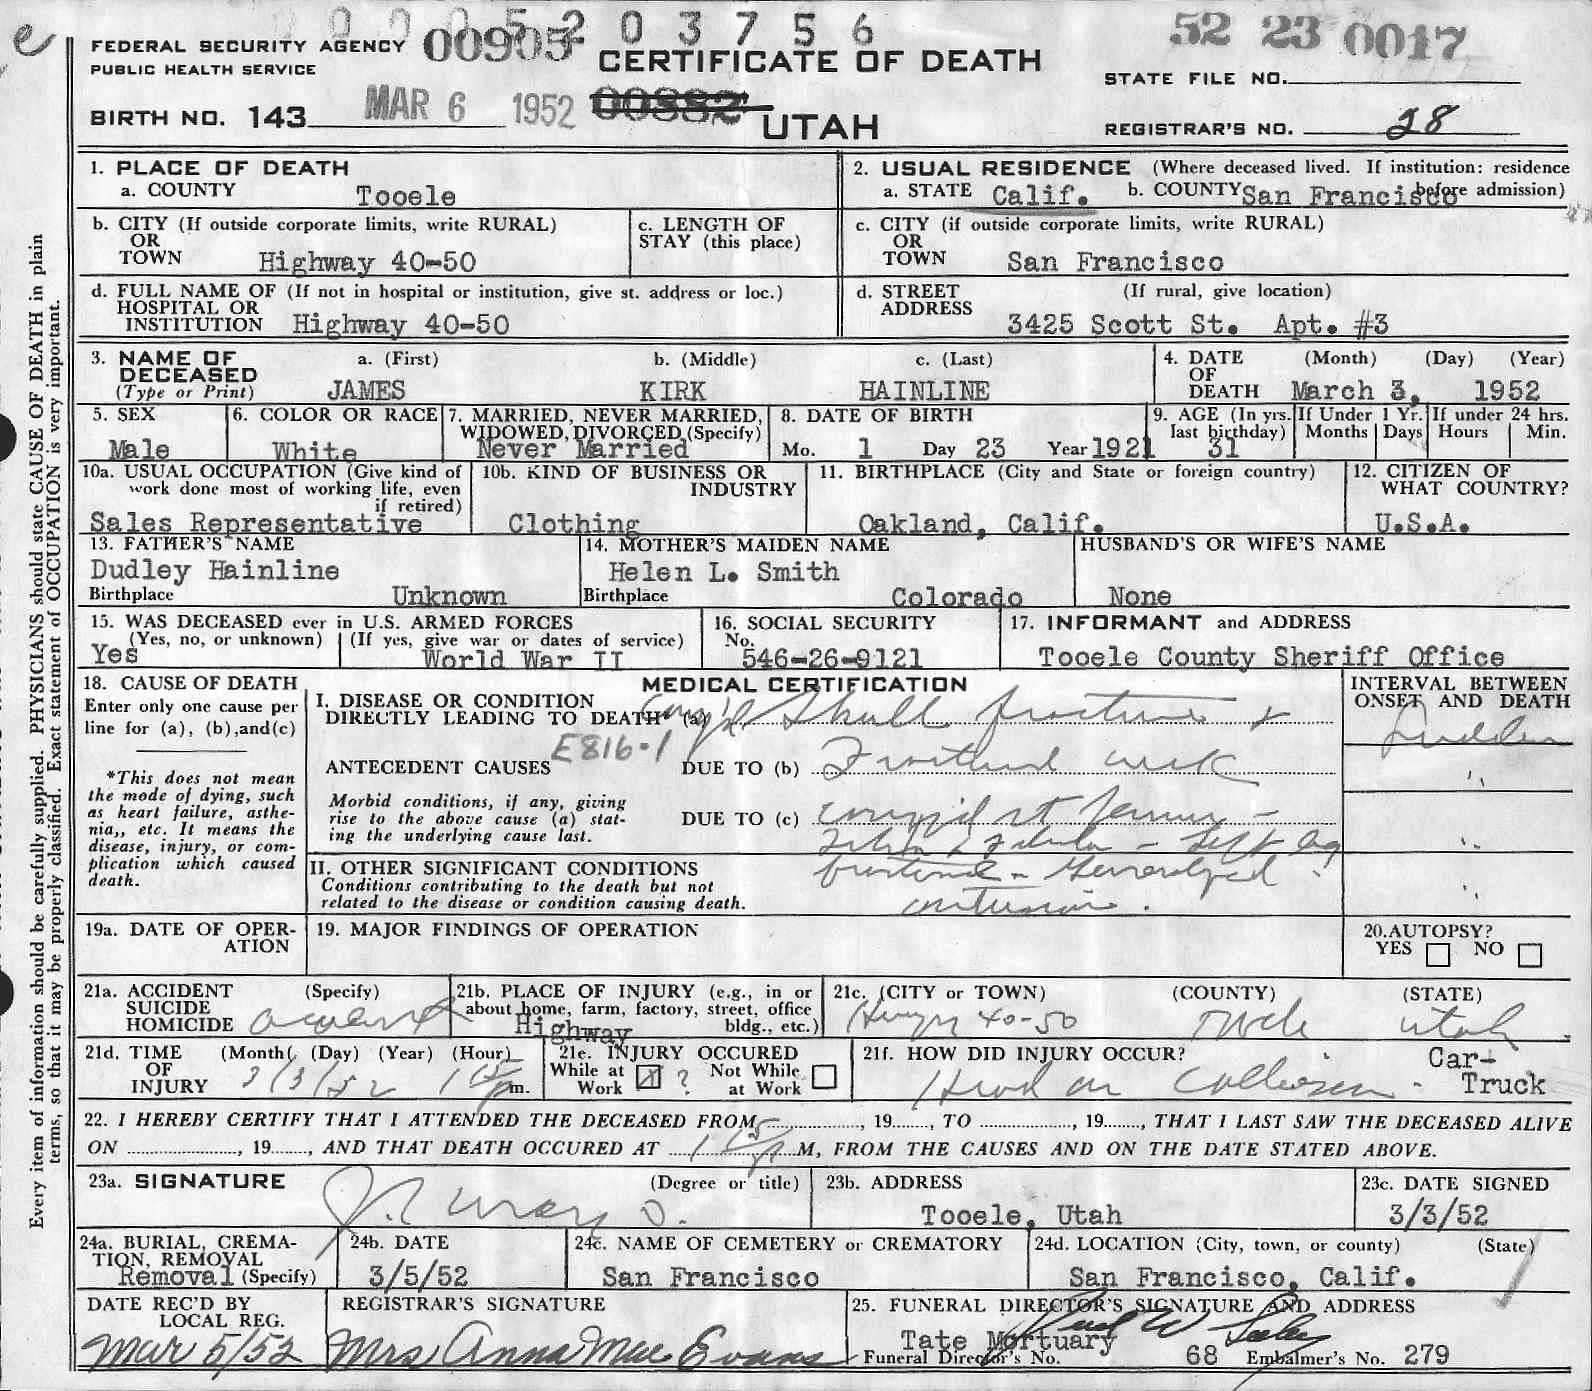 0 0 0 5 2 0 3 7 5 6
52 23 0017
e
FEDERAL SECURITY AGENCY 00905 CERTIFICATE OF DEATH
PUBLIC HEALTH SERVICE
STATE FILE NO.
BIRTH NO. 143 MAR 6 1952 00882 UTAH
REGISTRAR'S NO. 28
Every item of information should be carefully supplied. PHYSICIANS should state CAUSE OF DEATH in plain
terms, so that it may be properly classified. Exact statement of OCCUPATION is very important.
1. PLACE OF DEATH
a. COUNTY Tooele
2. USUAL RESIDENCE (Where deceased lived. If institution: residence
before admission)
a. STATE Calif. b. COUNTY San Francisco
b. CITY (If outside corporate limits, write RURAL)
OR
TOWN Highway 40-50
c. LENGTH OF
STAY (this place)
c. CITY (if outside corporate limits, write RURAL)
OR
TOWN San Francisco
d. FULL NAME OF (If not in hospital or institution, give st. address or loc.)
HOSPITAL OR
INSTITUTION Highway 40-50
d. STREET (If rural, give location)
ADDRESS
3425 Scott St. Apt. #3
3. NAME OF a. (First) b. (Middle) c. (Last)
DECEASED
(Type or Print) JAMES KIRK HAINLINE
4. DATE (Month) (Day) (Year)
OF
DEATH March 3, 1952
5. SEX
Male
6. COLOR OR RACE
White
7. MARRIED, NEVER MARRIED,
WIDOWED, DIVORCED (Specify)
Never Married
8. DATE OF BIRTH
Mo. 1 Day 23 Year 1921
9. AGE (In yrs.
last birthday)
31
If Under 1 Yr.
Months Days
If under 24 hrs.
Hours Min.
10a. USUAL OCCUPATION (Give kind of
work done most of working life, even
if retired)
Sales Representative
10b. KIND OF BUSINESS OR
INDUSTRY
Clothing
11. BIRTHPLACE (City and State or foreign country)
Oakland, Calif.
12. CITIZEN OF
WHAT COUNTRY?
U.S.A.
13. FATHER'S NAME
Dudley Hainline
Birthplace Unknown
14. MOTHER'S MAIDEN NAME
Helen L. Smith
Birthplace Colorado
HUSBAND'S OR WIFE'S NAME
None
15. WAS DECEASED ever in U.S. ARMED FORCES
(Yes, no, or unknown) (If yes, give war or dates of service)
Yes World War II
16. SOCIAL SECURITY
No.
546-26-9121
17. INFORMANT and ADDRESS
Tooele County Sheriff Office
18. CAUSE OF DEATH
Enter only one cause per
line for (a), (b),and(c)
*This does not mean
the mode of dying, such
as heart failure, asthe-
nia,, etc. It means the
disease, injury, or com-
plication which caused
death.
MEDICAL CERTIFICATION
I. DISEASE OR CONDITION
DIRECTLY LEADING TO DEATH* (a) Comp'd Skull fracture &
E816-1
ANTECEDENT CAUSES DUE TO (b) Fractured neck
Morbid conditions, if any, giving
rise to the above cause (a) stat-
ing the underlying cause last.
DUE TO (c) comp'd rt femur -
Tibia & fibula - Left leg
II. OTHER SIGNIFICANT CONDITIONS
Conditions contributing to the death but not
related to the disease or condition causing death.
fractured - Generalized
contusions.
INTERVAL BETWEEN
ONSET AND DEATH
Sudden
19a. DATE OF OPER-
ATION
19. MAJOR FINDINGS OF OPERATION
20. AUTOPSY?
YES NO
21a. ACCIDENT (Specify)
SUICIDE
HOMICIDE accident
21b. PLACE OF INJURY (e.g., in or
about home, farm, factory, street, office
bldg., etc.)
Highway
21c. (CITY or TOWN) (COUNTY) (STATE)
Hiway 40-50 Tooele Utah
21d. TIME (Month) (Day) (Year) (Hour)
OF
INJURY 3/3/52 1 15 pm.
21e. INJURY OCCURED
While at Work X ? Not While at Work
21f. HOW DID INJURY OCCUR?
Head on Collision - Car-
Truck
22. I HEREBY CERTIFY THAT I ATTENDED THE DECEASED FROM, 19, TO, 19, THAT I LAST SAW THE DECEASED ALIVE
ON, 19, AND THAT DEATH OCCURED AT 1 15 P M, FROM THE CAUSES AND ON THE DATE STATED ABOVE.
23a. SIGNATURE (Degree or title)
23b. ADDRESS
Tooele, Utah
23c. DATE SIGNED
3/3/52
24a. BURIAL, CREMA-
TION, REMOVAL
Removal (Specify)
24b. DATE
3/5/52
24c. NAME OF CEMETERY or CREMATORY
San Francisco
24d. LOCATION (City, town, or county) (State)
San Francisco, Calif.
DATE REC'D BY
LOCAL REG.
Mar 5/52
REGISTRAR'S SIGNATURE
Mrs Anna Mae Evans
25. FUNERAL DIRECTOR'S SIGNATURE AND ADDRESS
Tate Mortuary
Funeral Director's No. 68 Embalmer's No. 279